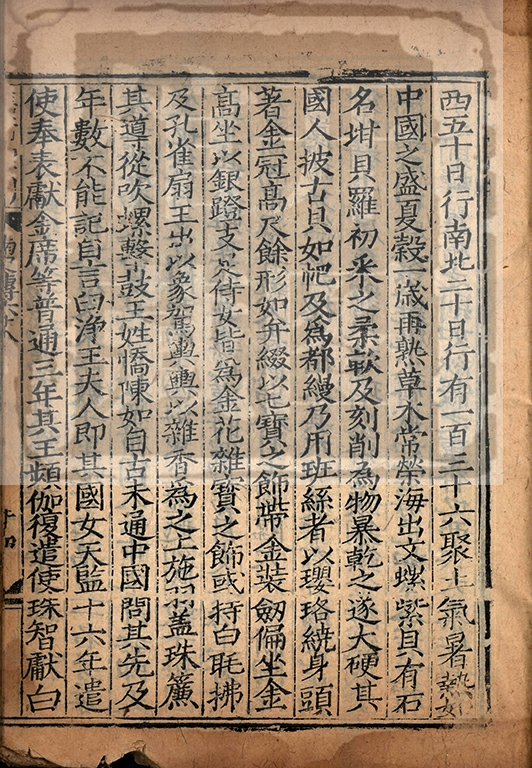 西五十日行南北二十日行有一百三十六聚土氣暑熱如
中國之盛夏穀一歲再熟草木常榮海出文螺紫貝有石
名坩貝羅初采之柔軟及刻削為物暴乾之遂大硬其
國人披古貝如帊及為都縵乃用班絲者以瓔珞繞身頭
著金冠高尺餘形如弁綴以七寶之飾帶金裝劔偏坐金
高坐以銀蹬支足侍女皆為金花雜寶之飾或持白毦拂
及孔雀扇王出以象駕輿輿以雜香為之上施羽蓋珠簾
其導從吹螺擊鼓王姓憍陳如自古未通中國問其先及
年數不能記自言白淨王夫人即其國女天監十六年遣
使奉表獻金席等普通三年其王頻伽復遣使珠智獻白